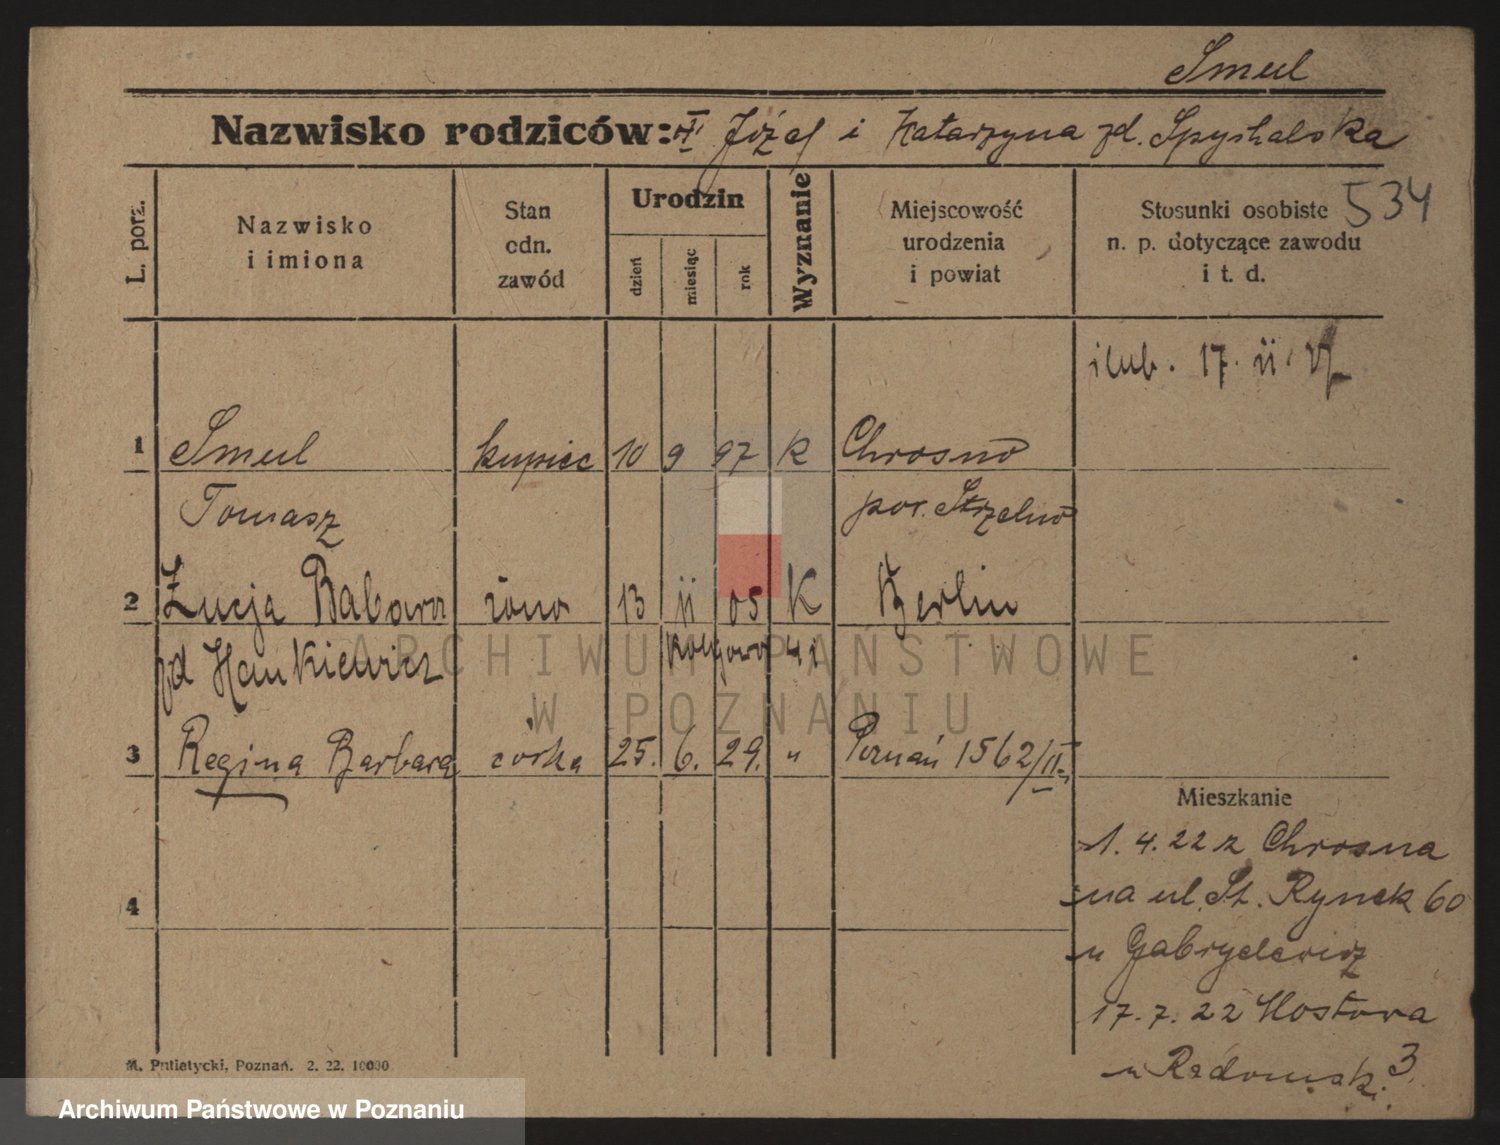 Smul
Nazwisko rodziców: Józef i Katarzyna zd. Spychalska
L. porz.
Nazwisko
i imiona
Stan
odn.
zawód
Urodzin
dzień
miesiąc
rok
Wyznanie
Miejscowość
urodzenia
i powiat
Stosunki osobiste 534
n. p. dotyczące zawodu
i t. d.
ślub. 17. ii.
1 Smul kupiec 10 9 97 K Chrosno
Tomasz pow. Strzelno
2 Łucja Babara żona 13 ii 05 K Berlin
zd Hankiewicz 41
3 Regina Barbara córka 25. 6. 29. " Poznań 1562/II.
Mieszkanie
1. 4. 22 z Chrosna
4
na ul. St. Rynek 60
u Gabryelewicz
17. 7. 22 Mostowa 3
u Radomsk.
M. Putiatycki, Poznań. 2. 22. 10000
ARCHIWUM PAŃSTWOWE
W POZNANIU
Archiwum Państwowe w Poznaniu